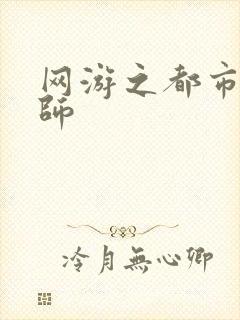 网游之都市
師
冷月無心卿